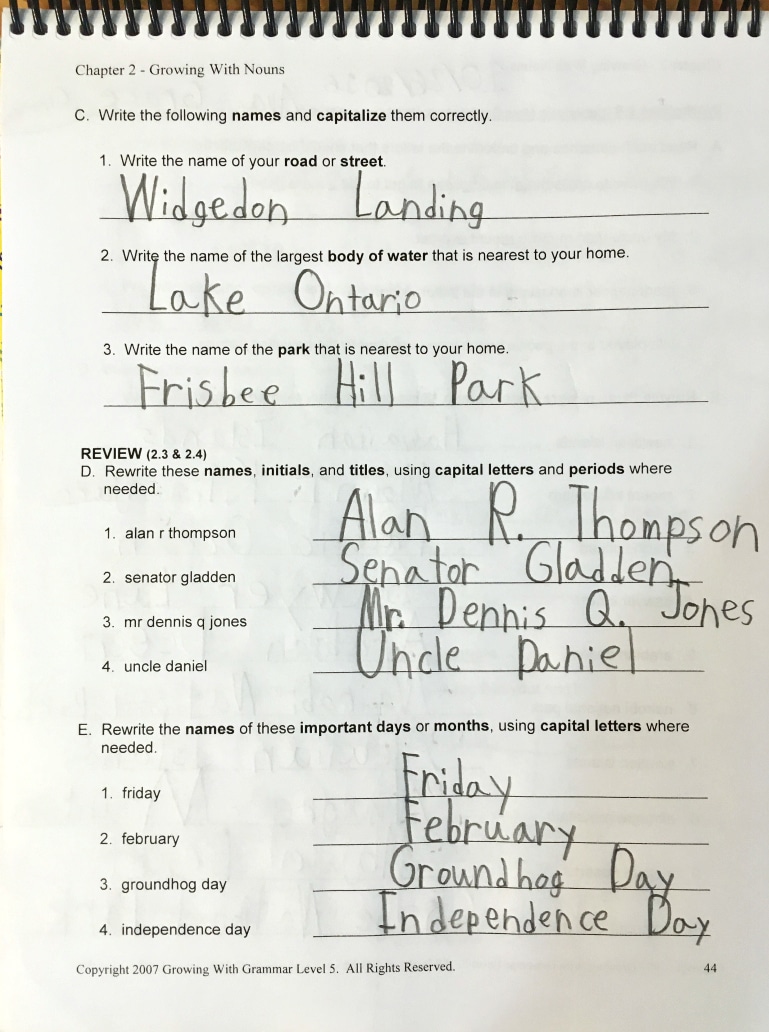 Chapter 2 - Growing With Nouns
C. Write the following names and capitalize them correctly.
1. Write the name of your road or street.
Widgedon Landing
2. Write the name of the largest body of water that is nearest to your home.
Lake Ontario
3. Write the name of the park that is nearest to your home.
Frisbee Hill Park
REVIEW (2.3 & 2.4)
D. Rewrite these names, initials, and titles, using capital letters and periods where
needed.
1. alan r thompson Alan R. Thompson
2. senator gladden Senator Gladden
3. mr dennis q jones Mr. Dennis Q. Jones
4. uncle daniel Uncle Daniel
E. Rewrite the names of these important days or months, using capital letters where
needed.
1. friday Friday
2. february February
3. groundhog day Groundhog Day
4. independence day Independence Day
Copyright 2007 Growing With Grammar Level 5. All Rights Reserved. 44